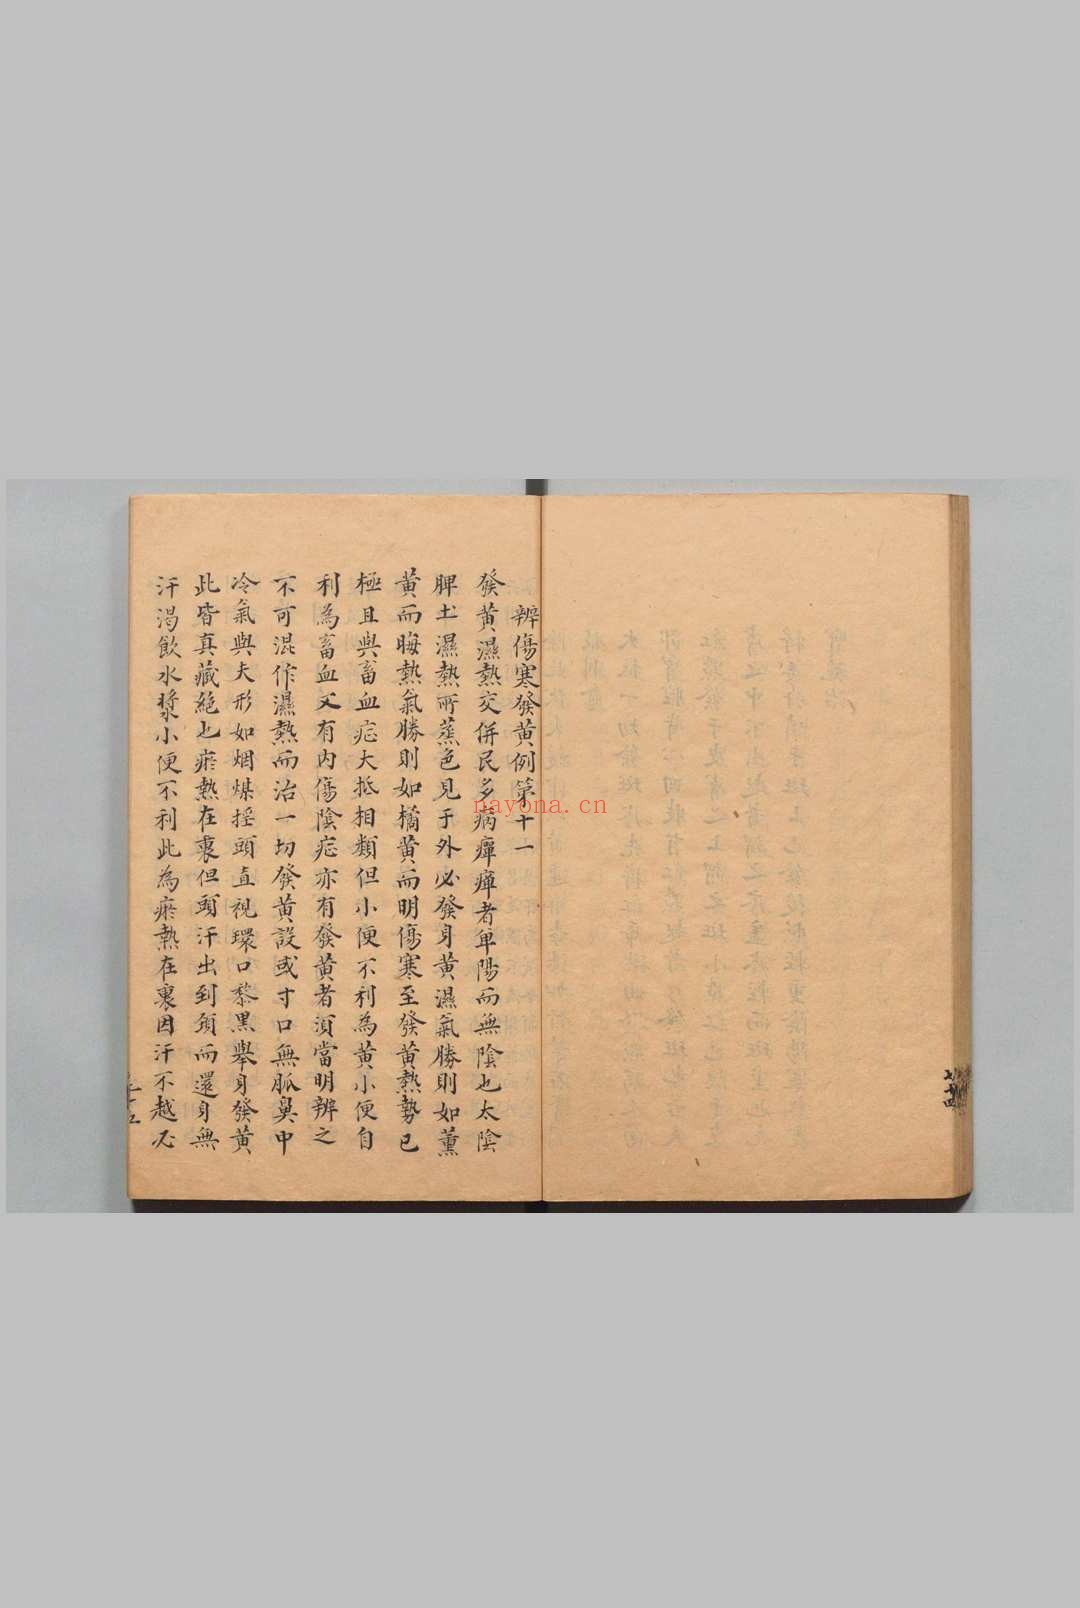 辨傷寒發黃例第十一
發黃濕熱交併民多病癉癉者单陽而無陰也太陰
脾土濕熱所蒸色見于外必發身黃濕氣勝則如薰
黃而晦熱氣勝則如橘黃而明傷寒至發黃熱勢已
極且與畜血疟大抵相類但小便不利為黃小便自
利為畜血又有內傷陰疟亦有發黃者須當明辨之
不可混作濕熱而治一切發黃設或寸口無脈鼻中
冷氣與夫形如烟煤摇頭直視環口黎黑舉身發黃
此皆真藏絕也瘀熱在裏但頭汗出到頚而還身無
汗渴飲水漿小便不利此為瘀熱在裏因汗不越必
nayona.cn